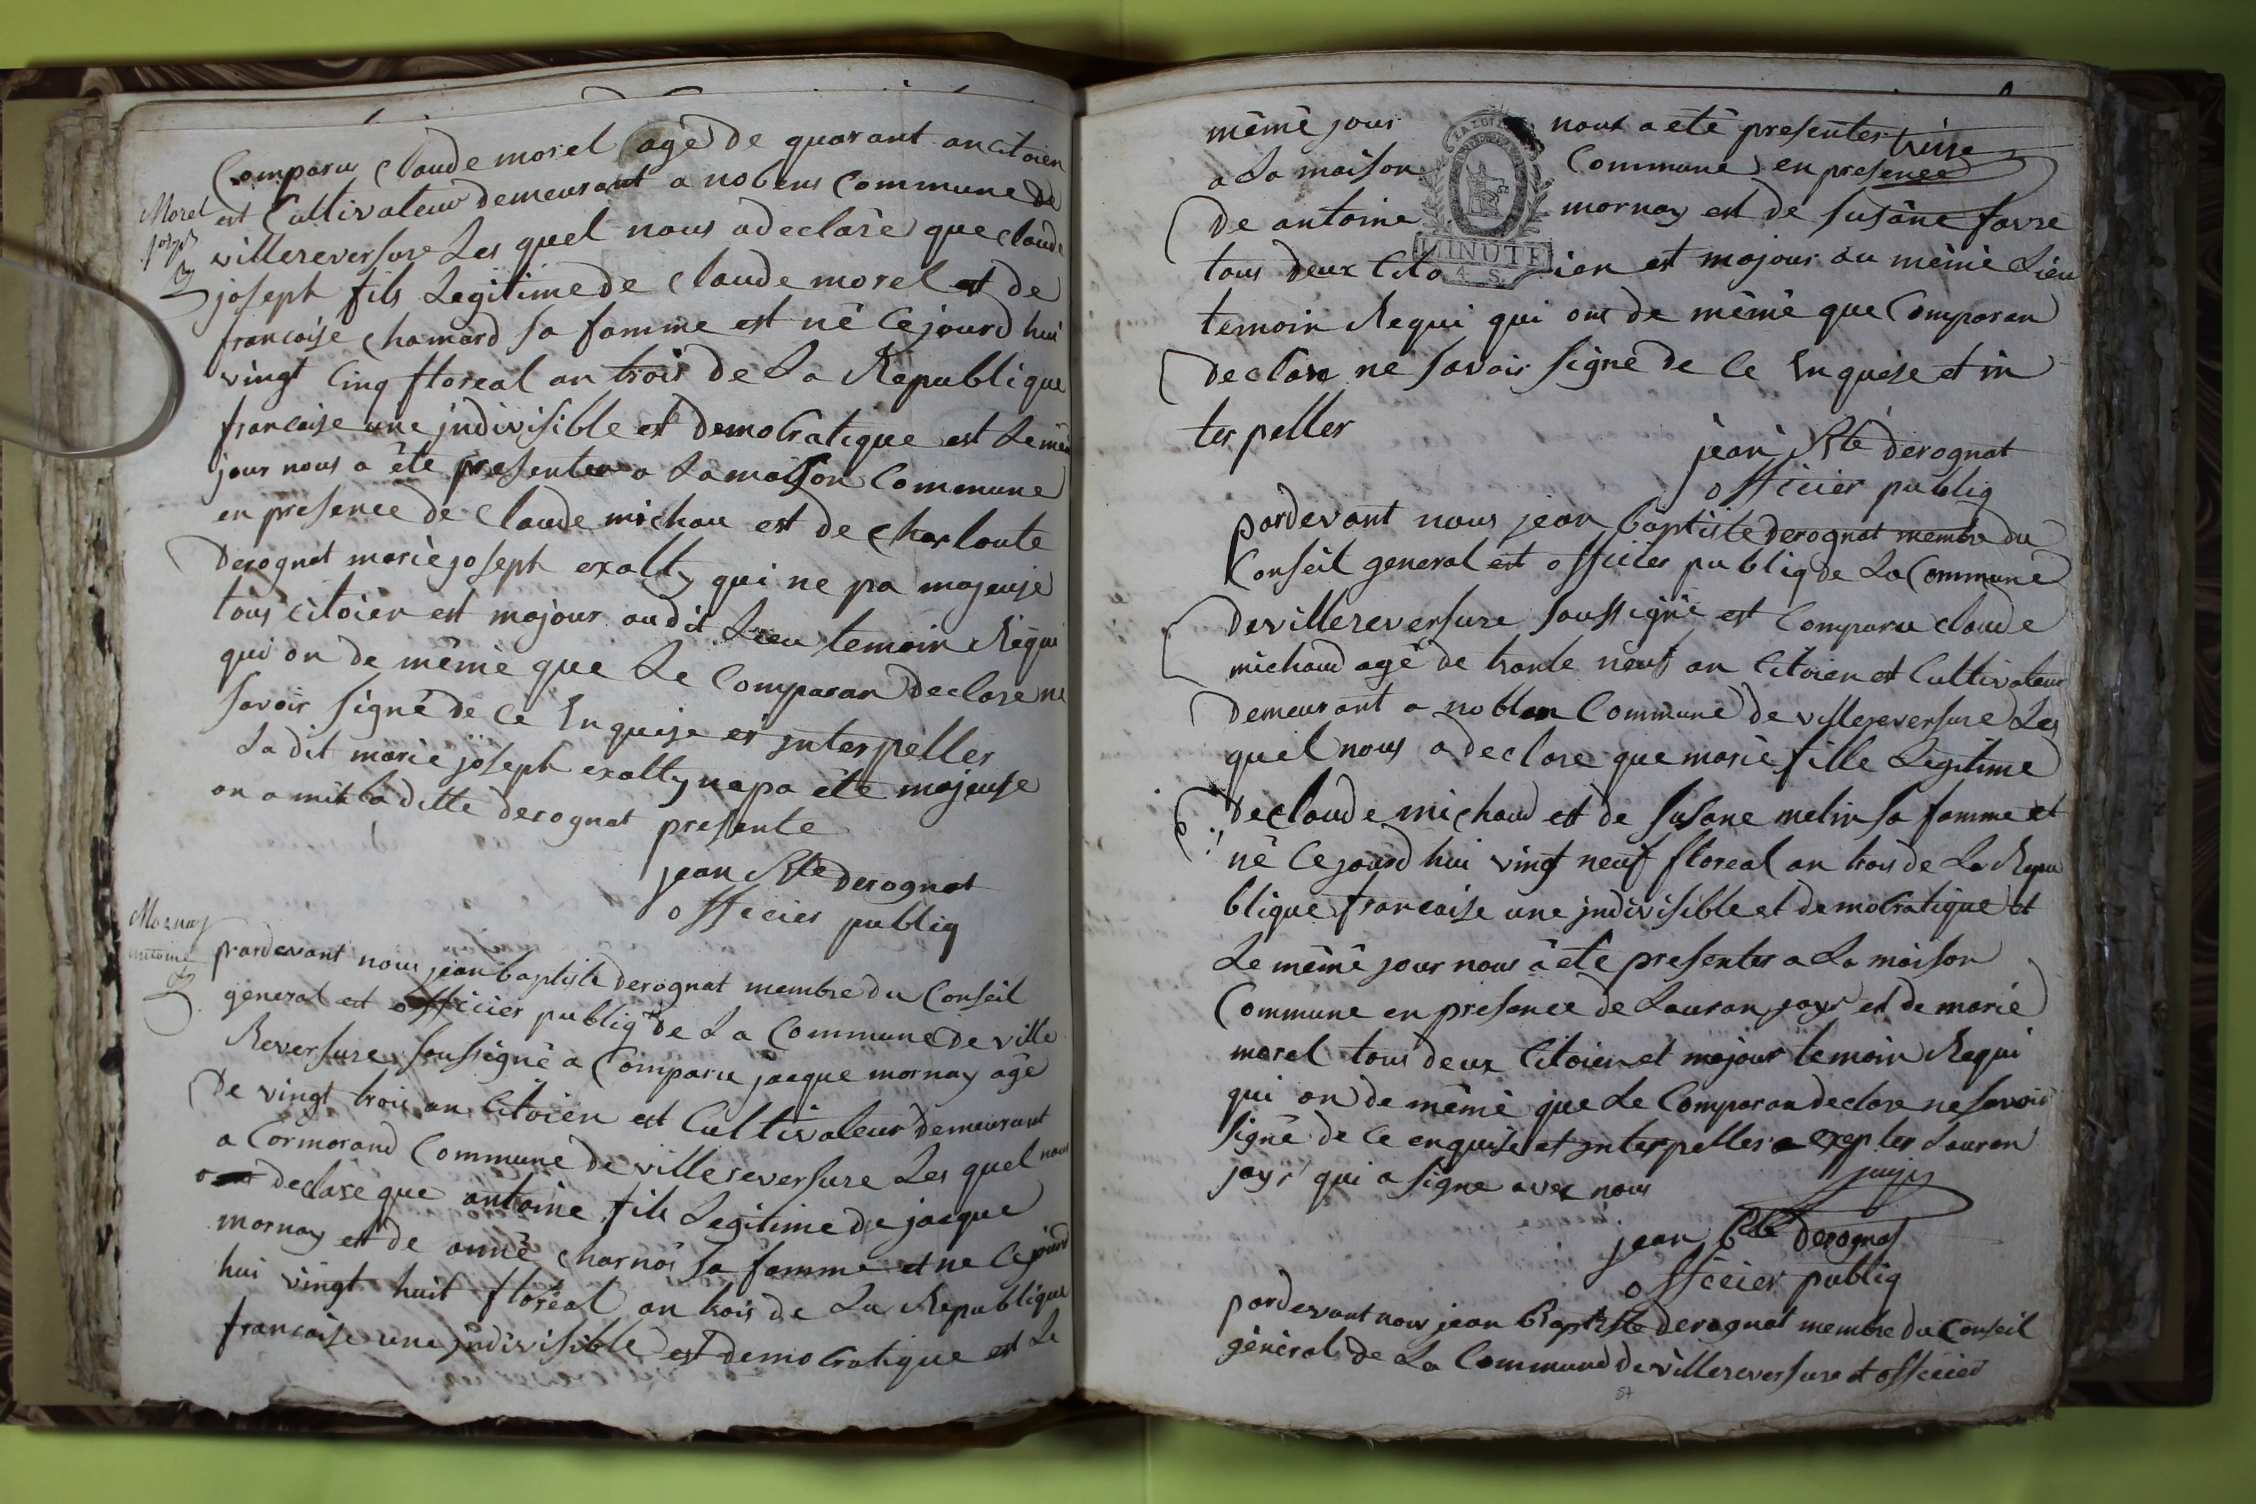 Comparu Claude morel agé de quarant an citoien
Morel
joseph
est Cultivateur demeurant a nobens Commune de
villereversure Les quel nous a declaré que claude
joseph fils Legitime de Claude morel et de
francoise chamard sa famme est né Ce jourd hui
vingt Cinq floreal an trois de La Republique
francaise une jndivisible et demoCratique est Le mêm
jour nous a été presenter a La maison Commune
en presence de Claude michau est de charloute
Derognat marie joseph exalty qui ne pa majeuse
tous citoien est majour au dit Lieu temoin Requi
qui on de même que Le Comparan Declare ne
savoir signé de Ce Enquise et jnterpeller
La dit marie joseph exalty na pa été majeuse
on a mit la ditte derognat presente
jean Bte derognat
officier publiq
Mornay
antoine
pardevant nous jean baptiste derognat membre du Conseil
general est officier publiq de La Commune de ville
Reversure soussigné a Comparu jacque mornay agé
De vingt trois an Citoien est Cultivateur demeurant
a Cormorand Commune de villereversure Les quel nous
a declare que antoine fils Legitime de jacque
mornay et de anne charnoi sa famme et ne Ce jourd
hui vingt huit floreal an trois de La Republique
francaise une jndivisible est demoCratique est Le
même jour nous a été presenter treise
a La maison Commune en presence
De antoine mornay est de susâne favre
tous deux Cito ien est majour au même Lieu
LA LOI
MINUTE
4. S.
temoin Requi qui ont de même que Comparan
declare ne savoir signé de Ce Enquise et in
terpeller
jean Bte derognat
officier publiq
pardevant nous jean baptiste derognat membre du
Conseil general est officier publiq de La Commune
De villereversure soussigné est Comparu claude
michaud agé de trante neuf an Citoien et Cultivateur
Demeurant a noblan Commune de villereversure Les
quel nous a declare que marie fille Legitime
De claude michaud et de susane melin sa famme et
né Ce jourd hui vingt neuf floreal an trois de La Repu
blique francaise une jndivisible et demoCratique et
Le même jour nous a été presenter a La maison
Commune en presence de Lauran jayr et de marie
morel tous deux Citoien et majour temoin Requi
qui on de même que Le Comparan declare ne savoir
signé de Ce enquise et jnterpeller a exepter Lauran
jayr qui a signe avec nous
jayr
jean bte derognat
officier publiq
pardevant nous jean Baptiste derognat membre du Conseil
général de La Commune de villereversure et officier
57